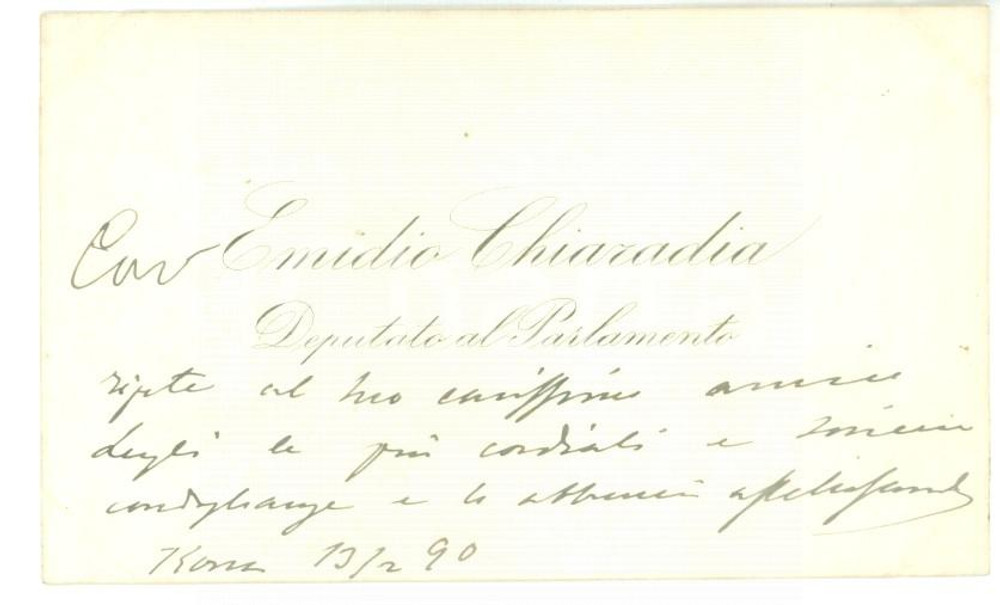 Cav Emidio Chiaradia
Deputato al Parlamento
ripete al suo carissimo amico
Luigi le più cordiali e sincere
condoglianze e lo abbraccia affettuosamente
Roma 13/2 90